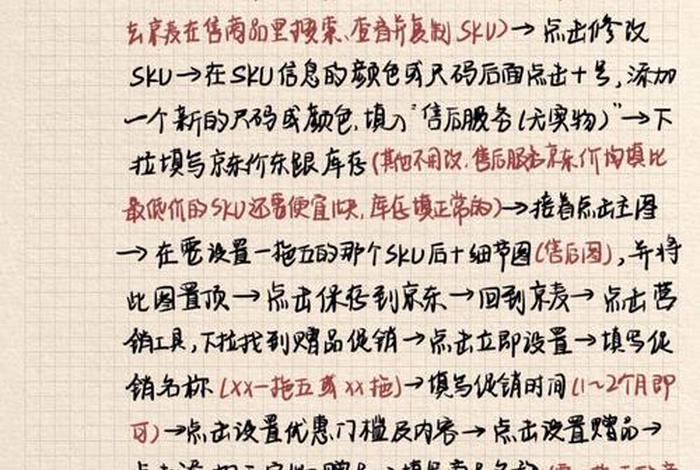 去京麦在售商品里搜索、查看并复制SKU)→点击修改
SKU→在SKU信息的颜色或尺码后面点击十号,添加
一个新的尺码或颜色,填入"售后服务(无实物)"→下
拉填写京东价京东跟库存(其他不用改,售后服务京东价均填比
最低价的SKU还要便宜1块,库存填正常的)→接着点击主图
→在要设置一拖五的那个SKU后十细节图(售后图),并将
此图置顶→点击保存到京东→回到京麦→点击营
销工具,下拉找到赠品促销→点击立即设置→填写促
销名称(XX一拖五或XX拖)→填写促销时间(1~2个月即
可)→点击设置优惠门槛及内容→点击设置赠品→